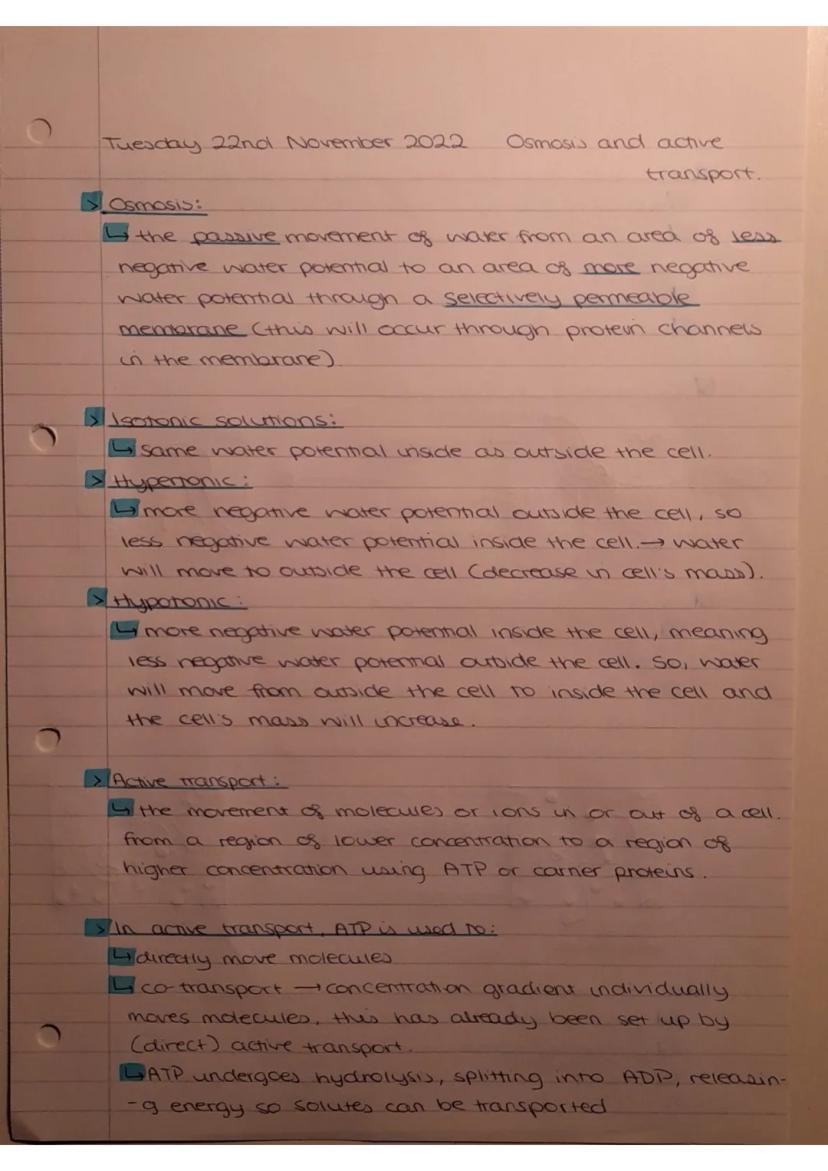 Tuesday 22nd November 2022 Osmosis and active
transport.
> Osmosis:
↳ the passive movement of water from an area of less
negative water potential to an area of more negative
water potential through a selectively permeable
membrane (this will occur through protein channels
in the membrane).
> Isotonic solutions:
↳ same water potential inside as outside the cell.
> Hypertonic:
↳ more negative water potential outside the cell, so
less negative water potential inside the cell. → water
will move to outside the cell (decrease in cell's mass).
> Hypotonic:
↳ more negative water potential inside the cell, meaning
less negative water potential outside the cell. So, water
will move from outside the cell to inside the cell and
the cell's mass will increase.
> Active transport:
↳ the movement of molecules or ions in or out of a cell.
from a region of lower concentration to a region of
higher concentration using ATP or carrier proteins.
> In active transport, ATP is used to:
↳ directly move molecules
↳ co-transport → concentration gradient individually
moves molecules, this has already been set up by
(direct) active transport.
↳ ATP undergoes hydrolysis, splitting into ADP, releasin-
-g energy so solutes can be transported